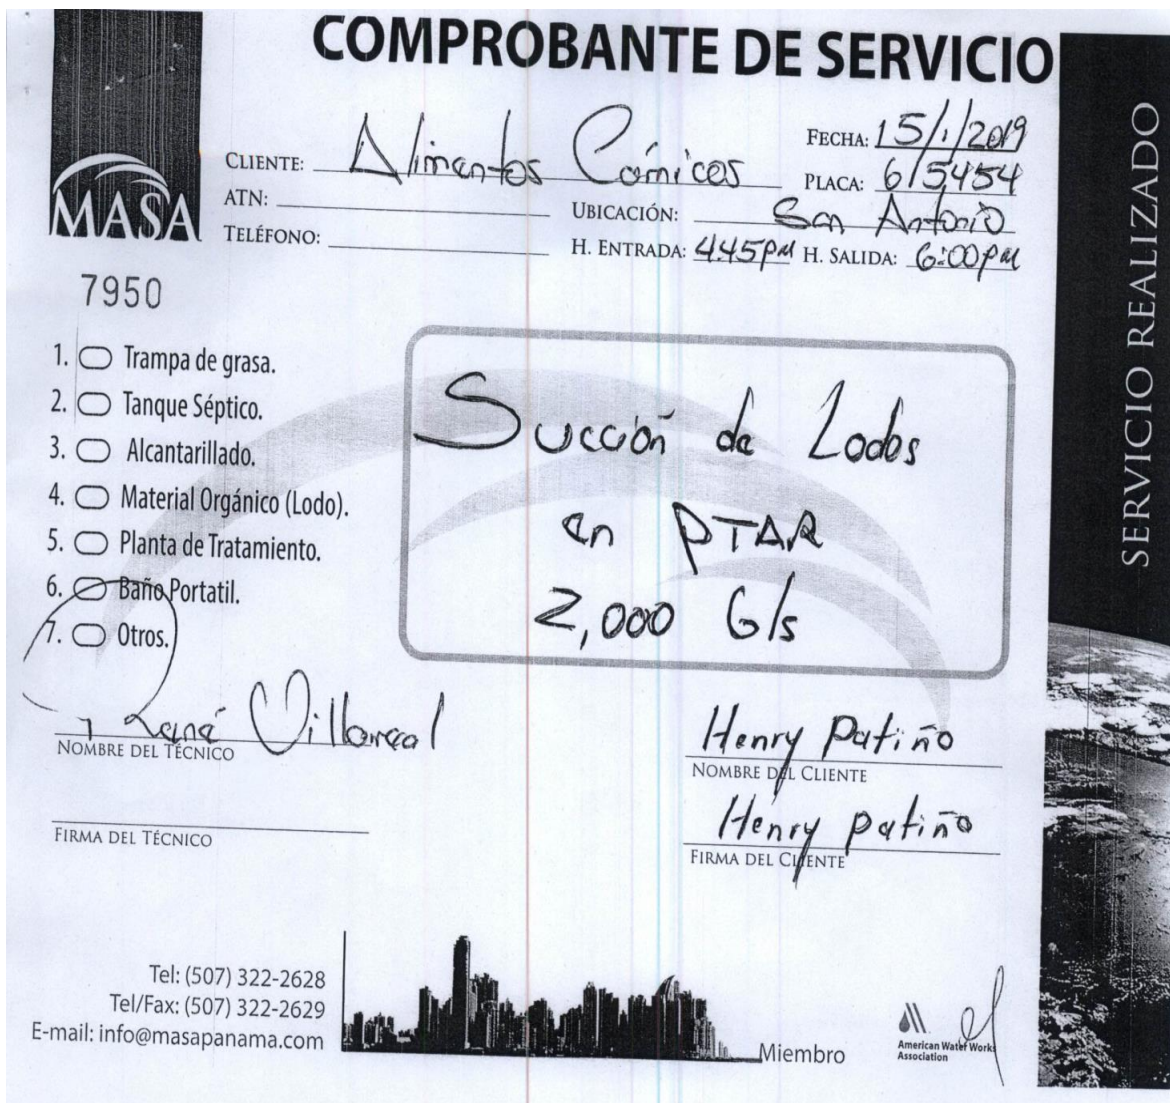 COMPROBANTE DE SERVICIO
MASA
CLIENTE: Alimentos Cárnicos
FECHA: 15/1/2019
PLACA: 615454
ATN:
UBICACIÓN: San Antonio
TELÉFONO:
H. ENTRADA: 4:45pm H. SALIDA: 6:00pm
7950
1. Trampa de grasa.
2. Tanque Séptico.
3. Alcantarillado.
4. Material Orgánico (Lodo).
5. Planta de Tratamiento.
6. Baño Portatil.
7. Otros.
Succión de Lodos
en PTAR
2,000 Gls
René Villareal
NOMBRE DEL TÉCNICO
FIRMA DEL TÉCNICO
Henry Patiño
NOMBRE DEL CLIENTE
Henry Patiño
FIRMA DEL CLIENTE
Tel: (507) 322-2628
Tel/Fax: (507) 322-2629
E-mail: info@masapanama.com
Miembro
American Water Works
Association
SERVICIO REALIZADO